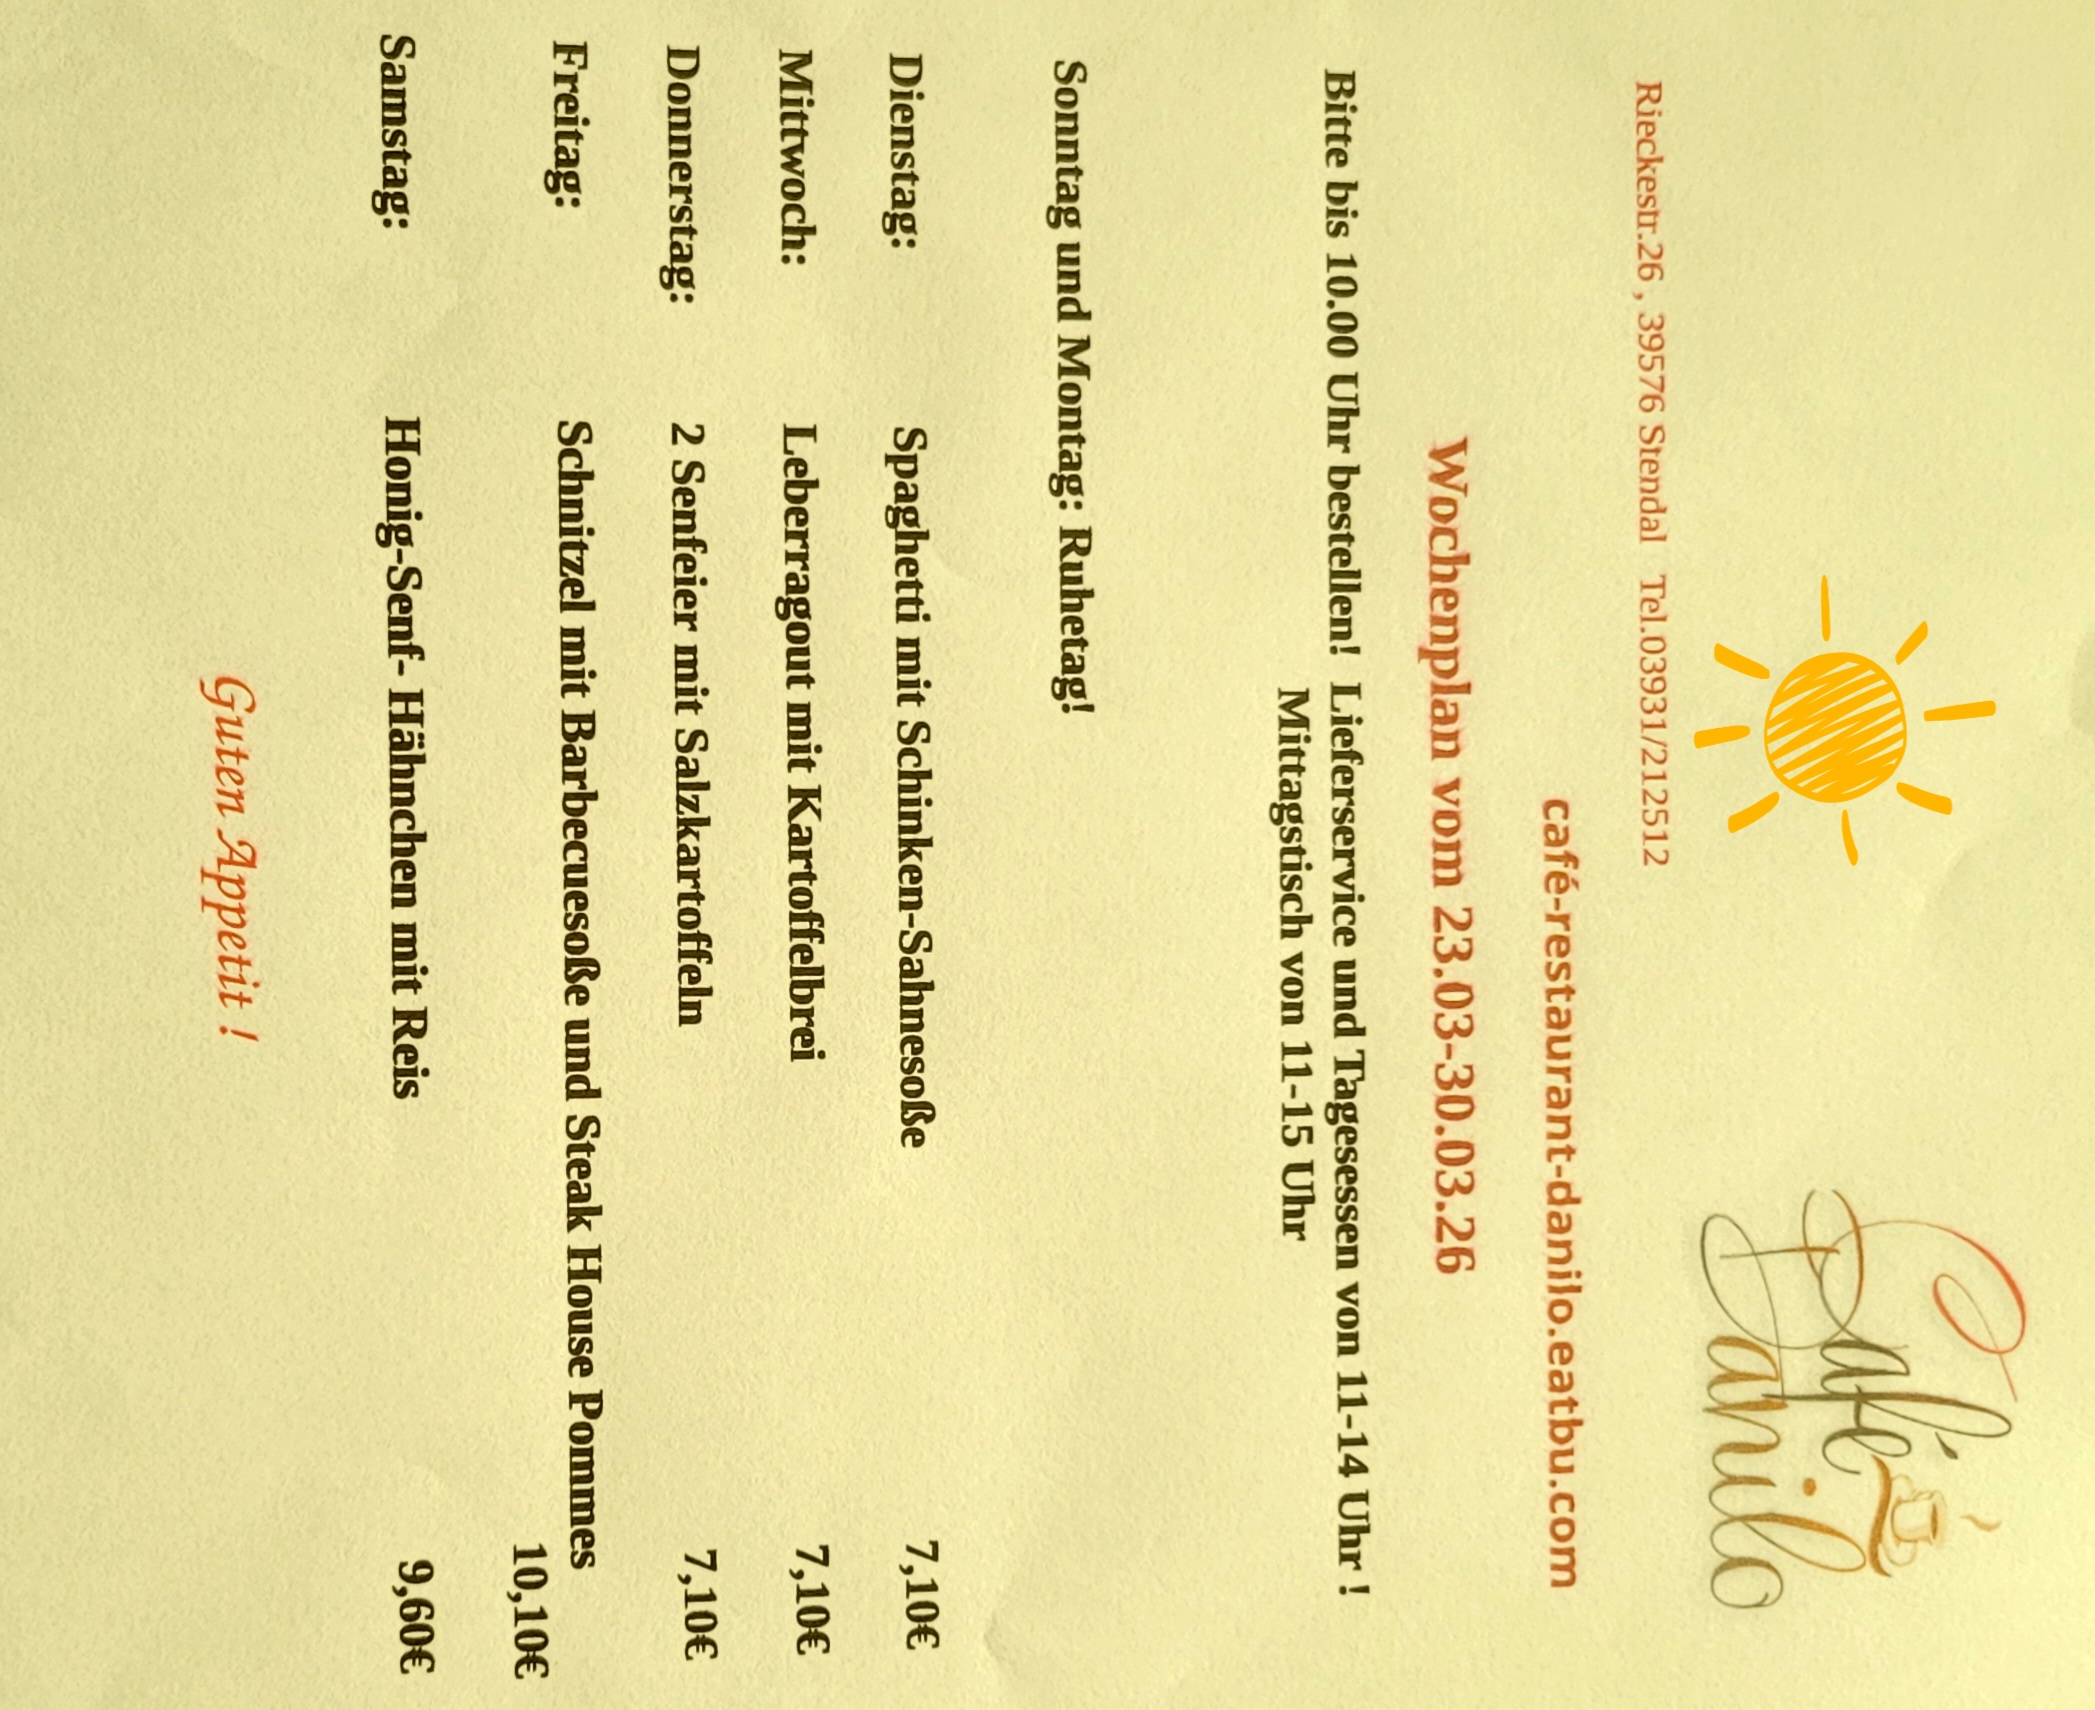 Café
Danilo
Rieckestr.26 , 39576 Stendal Tel.03931/212512
café-restaurant-danilo.eatbu.com
Wochenplan vom 23.03-30.03.26
Bitte bis 10.00 Uhr bestellen! Lieferservice und Tagesessen von 11-14 Uhr !
Mittagstisch von 11-15 Uhr
Sonntag und Montag: Ruhetag!
Dienstag: Spaghetti mit Schinken-Sahnesoße 7,10€
Mittwoch: Leberragout mit Kartoffelbrei 7,10€
Donnerstag: 2 Senfeier mit Salzkartoffeln 7,10€
Freitag: Schnitzel mit Barbecuesoße und Steak House Pommes
10,10€
Samstag: Honig-Senf- Hähnchen mit Reis 9,60€
Guten Appetit !